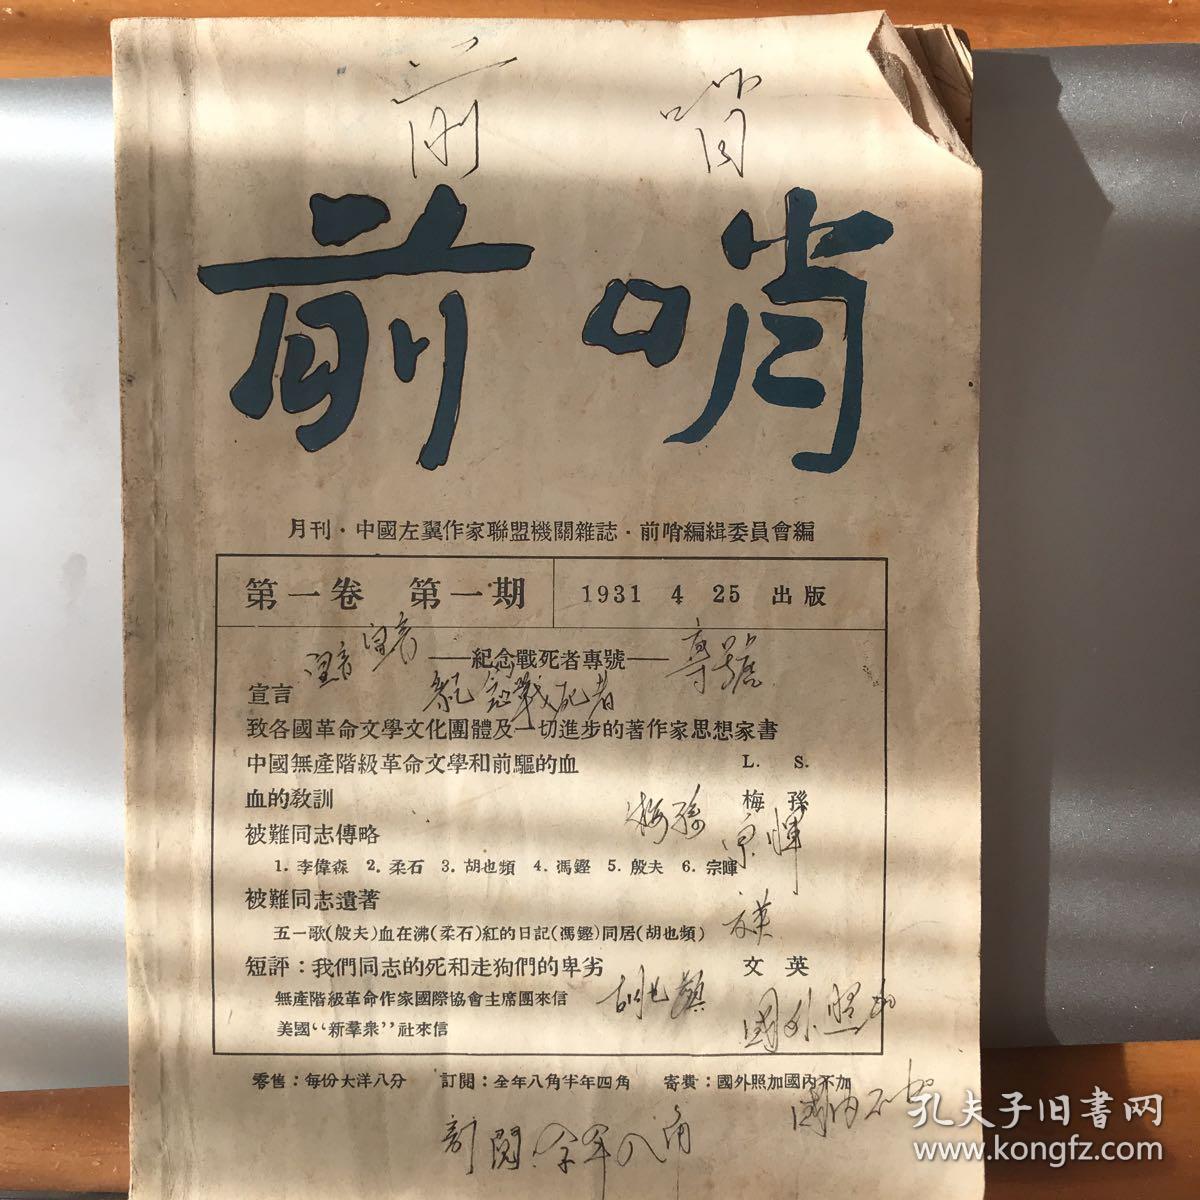 前 哨
前哨
月刊·中國左翼作家聯盟機關雜誌·前哨編緝委員會編
第一卷 第一期 1931 4 25 出版
宣言 宣言
——紀念戰死者專號—— 專號
宣言 紀念戰死者
致各國革命文學文化團體及一切進步的著作家思想家書
中國無產階級革命文學和前驅的血 L. S.
血的教訓 梅孫 梅孫
被難同志傳略 宗暉
1. 李偉森 2. 柔石 3. 胡也頻 4. 馮鏗 5. 殷夫 6. 宗暉
被難同志遺著 文英
五一歌(殷夫)血在沸(柔石)紅的日記(馮鏗)同居(胡也頻)
短評：我們同志的死和走狗們的卑劣 文英
無產階級革命作家國際協會主席團來信 胡也頻 國外照加
美國“新羣衆”社來信
零售：每份大洋八分 訂閱：全年八角半年四角 寄費：國外照加國內不加
國內不加
訂閱：全年八角
孔夫子旧書网
www.kongfz.com